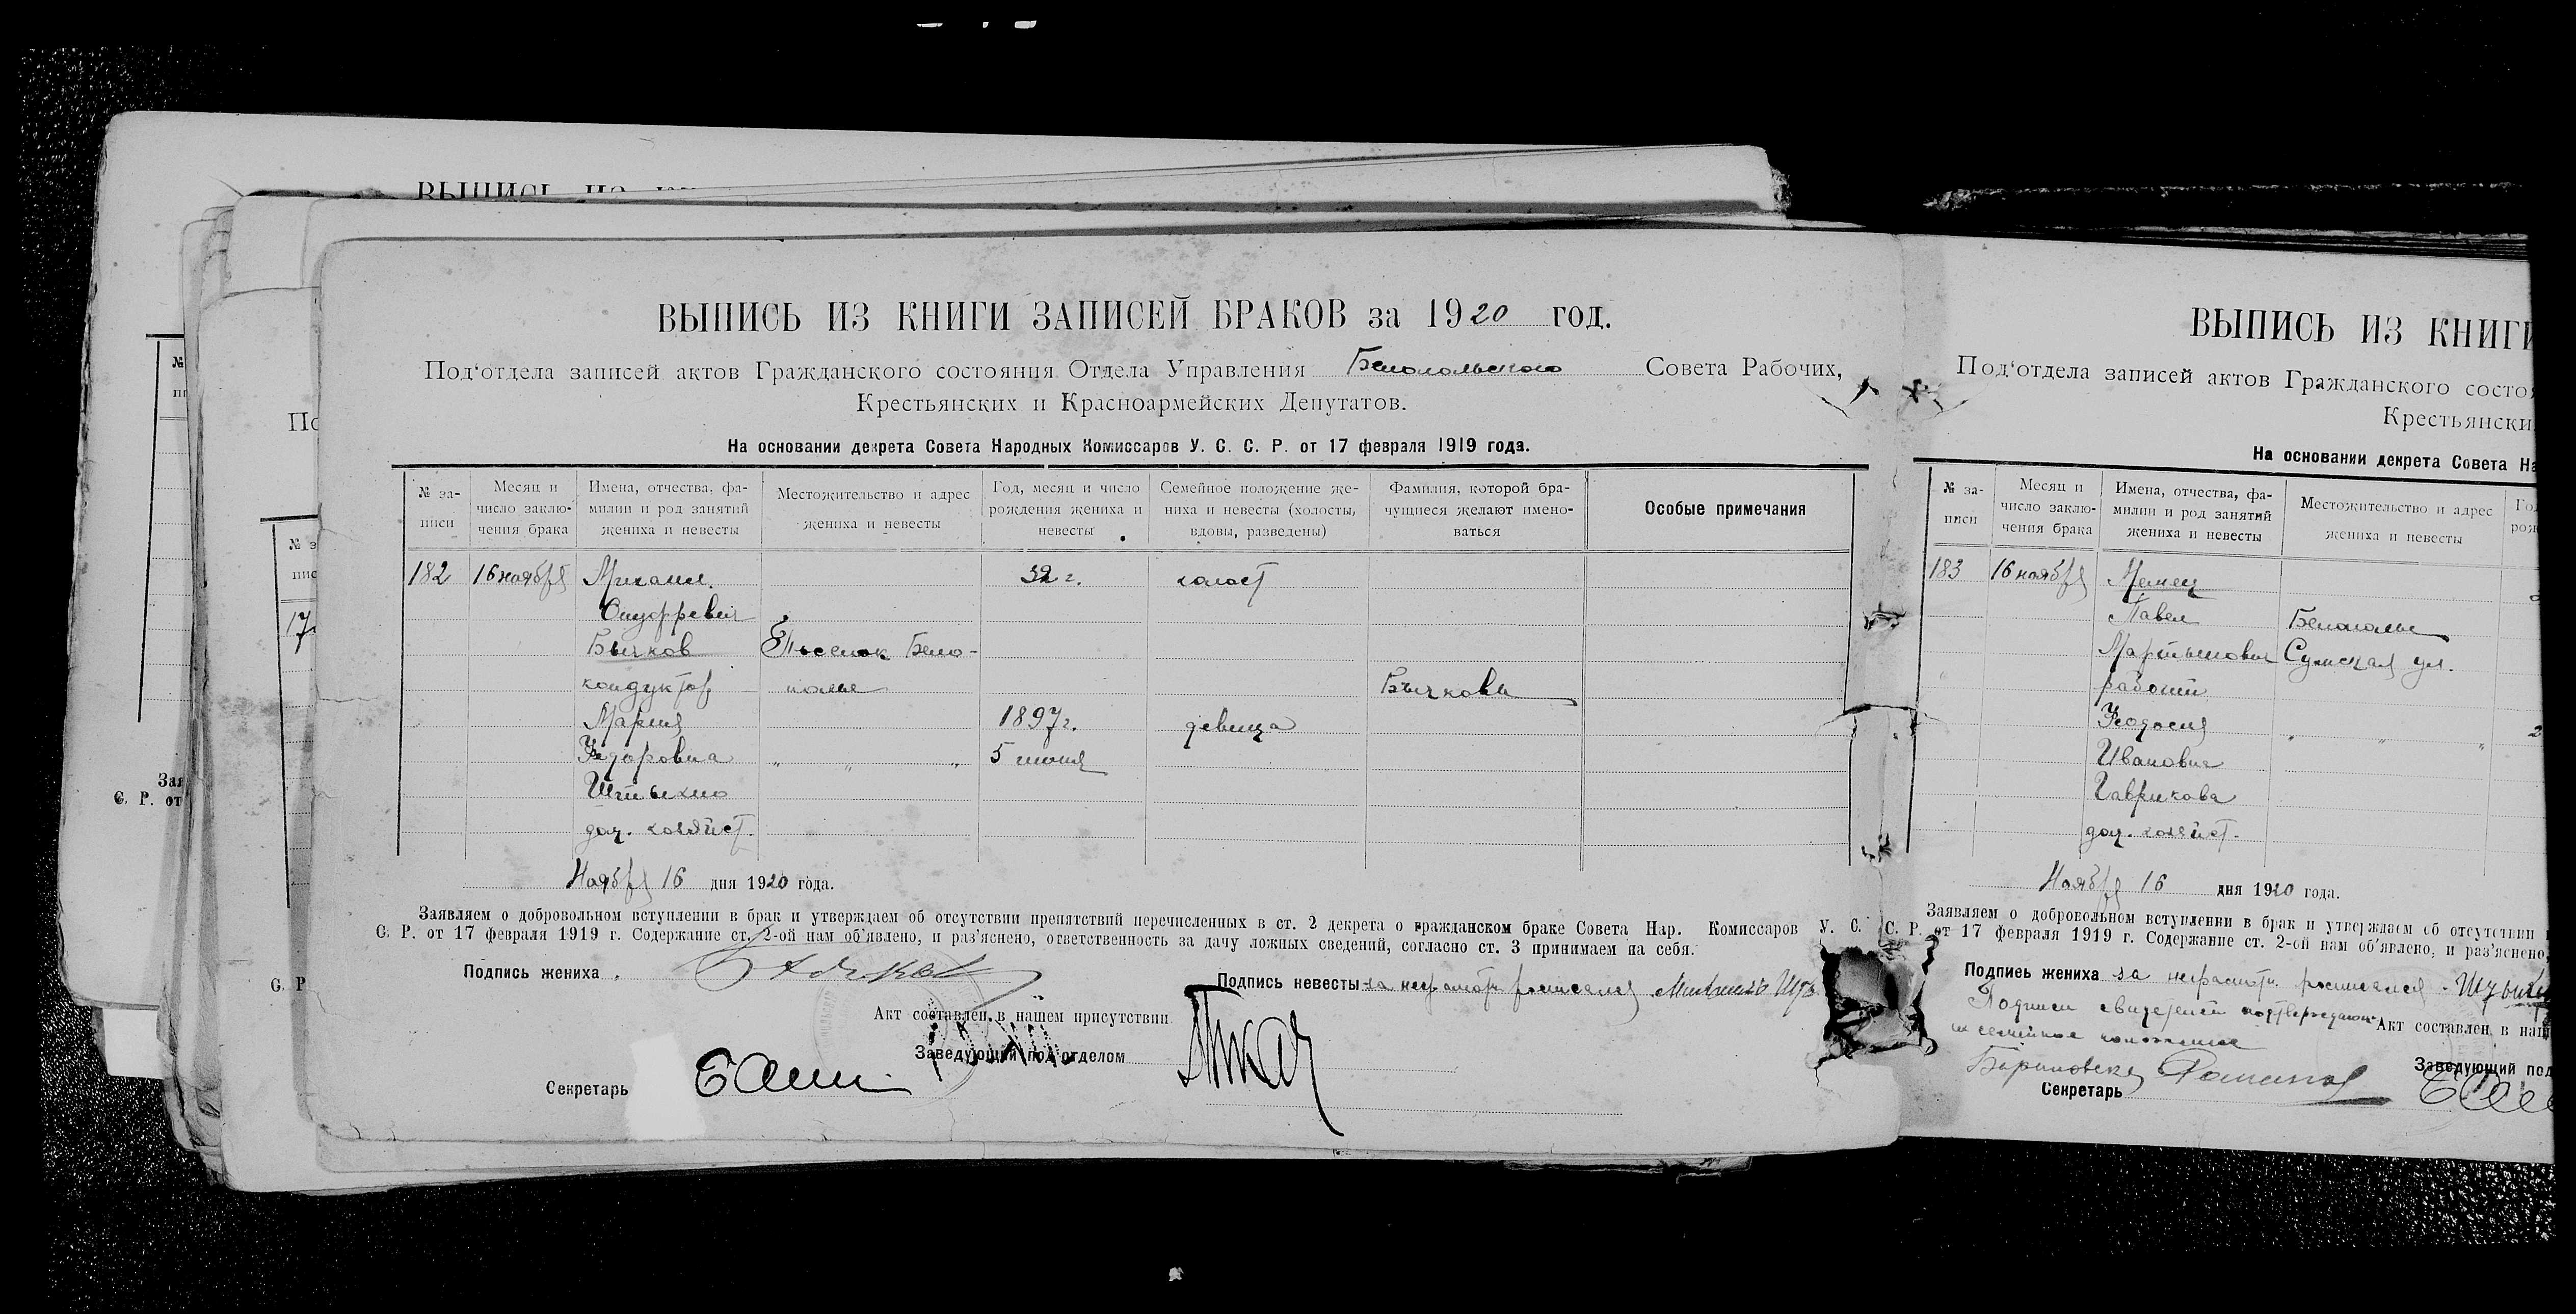 ВЫПИСЬ ИЗ КНИГИ ЗАПИСЕЙ БРАКОВ за 1920 год.
Под‘отдела записей актов Гражданского состояния Отдела Управления Белопольского Совета Рабочих,
Крестьянских и Красноармейских Депутатов.
На основании декрета Совета Народных Комиссаров У. С. С. Р. от 17 февраля 1919 года.
№ за-
писи
Месяц и
число заклю-
чения брака
Имена, отчества, фа-
милии и род занятий
жениха и невесты
Местожительство и адрес
жениха и невесты
Год, месяц и число
рождения жениха и
невесты
Семейное положение же-
ниха и невесты (холосты,
вдовы, разведены)
Фамилия, которой бра-
чущиеся желают имено-
ваться
Особые примечания
182 16 ноября Михаил 32 г. холост
Онуфревич
Бычков Поселок Бело-
кондуктор полье Бычковы
Мария 1897 г. девица
Федоровна „ „ „ 5 июня
Штыхно
дом. хозяйст.
Ноября 16 дня 1920 года.
Заявляем о добровольном вступлении в брак и утверждаем об отсутствии препятствий перечисленных в ст. 2 декрета о гражданском браке Совета Нар. Комиссаров У. С.
С. Р. от 17 февраля 1919 г. Содержание ст. 2-ой нам об‘явлено, и раз‘яснено, ответственность за дачу ложных сведений, согласно ст. 3 принимаем на себя.
Подпись жениха
Подпись невесты за неграмотн. росписался
Акт составлен в нашем присутствии
Заведующий под‘отделом
Секретарь
ВЫПИСЬ ИЗ КНИГИ
Под‘отдела записей актов Гражданского состоя
Крестьянски
На основании декрета Совета На
№ за-
писи
Месяц и
число заклю-
чения брака
Имена, отчества, фа-
милии и род занятий
жениха и невесты
Местожительство и адрес
жениха и невесты
183 16 ноября
Павел Белополье
Мартынович Сумская ул.
рабочий
Феодосия „ „ „
Ивановна
Гаврикова
дом. хозяйст.
Ноября 16 дня 1920 года.
Заявляем о добровольном вступлении в брак и утверждаем об отсутствии
С. Р. от 17 февраля 1919 г. Содержание ст. 2-ой нам об‘явлено, и раз‘яснено,
Подпись жениха за неграмотн. росписался
Подписи свидетелей подтверждающ. Акт составлен в наш
их семейное положение
Заведующий под
Секретарь